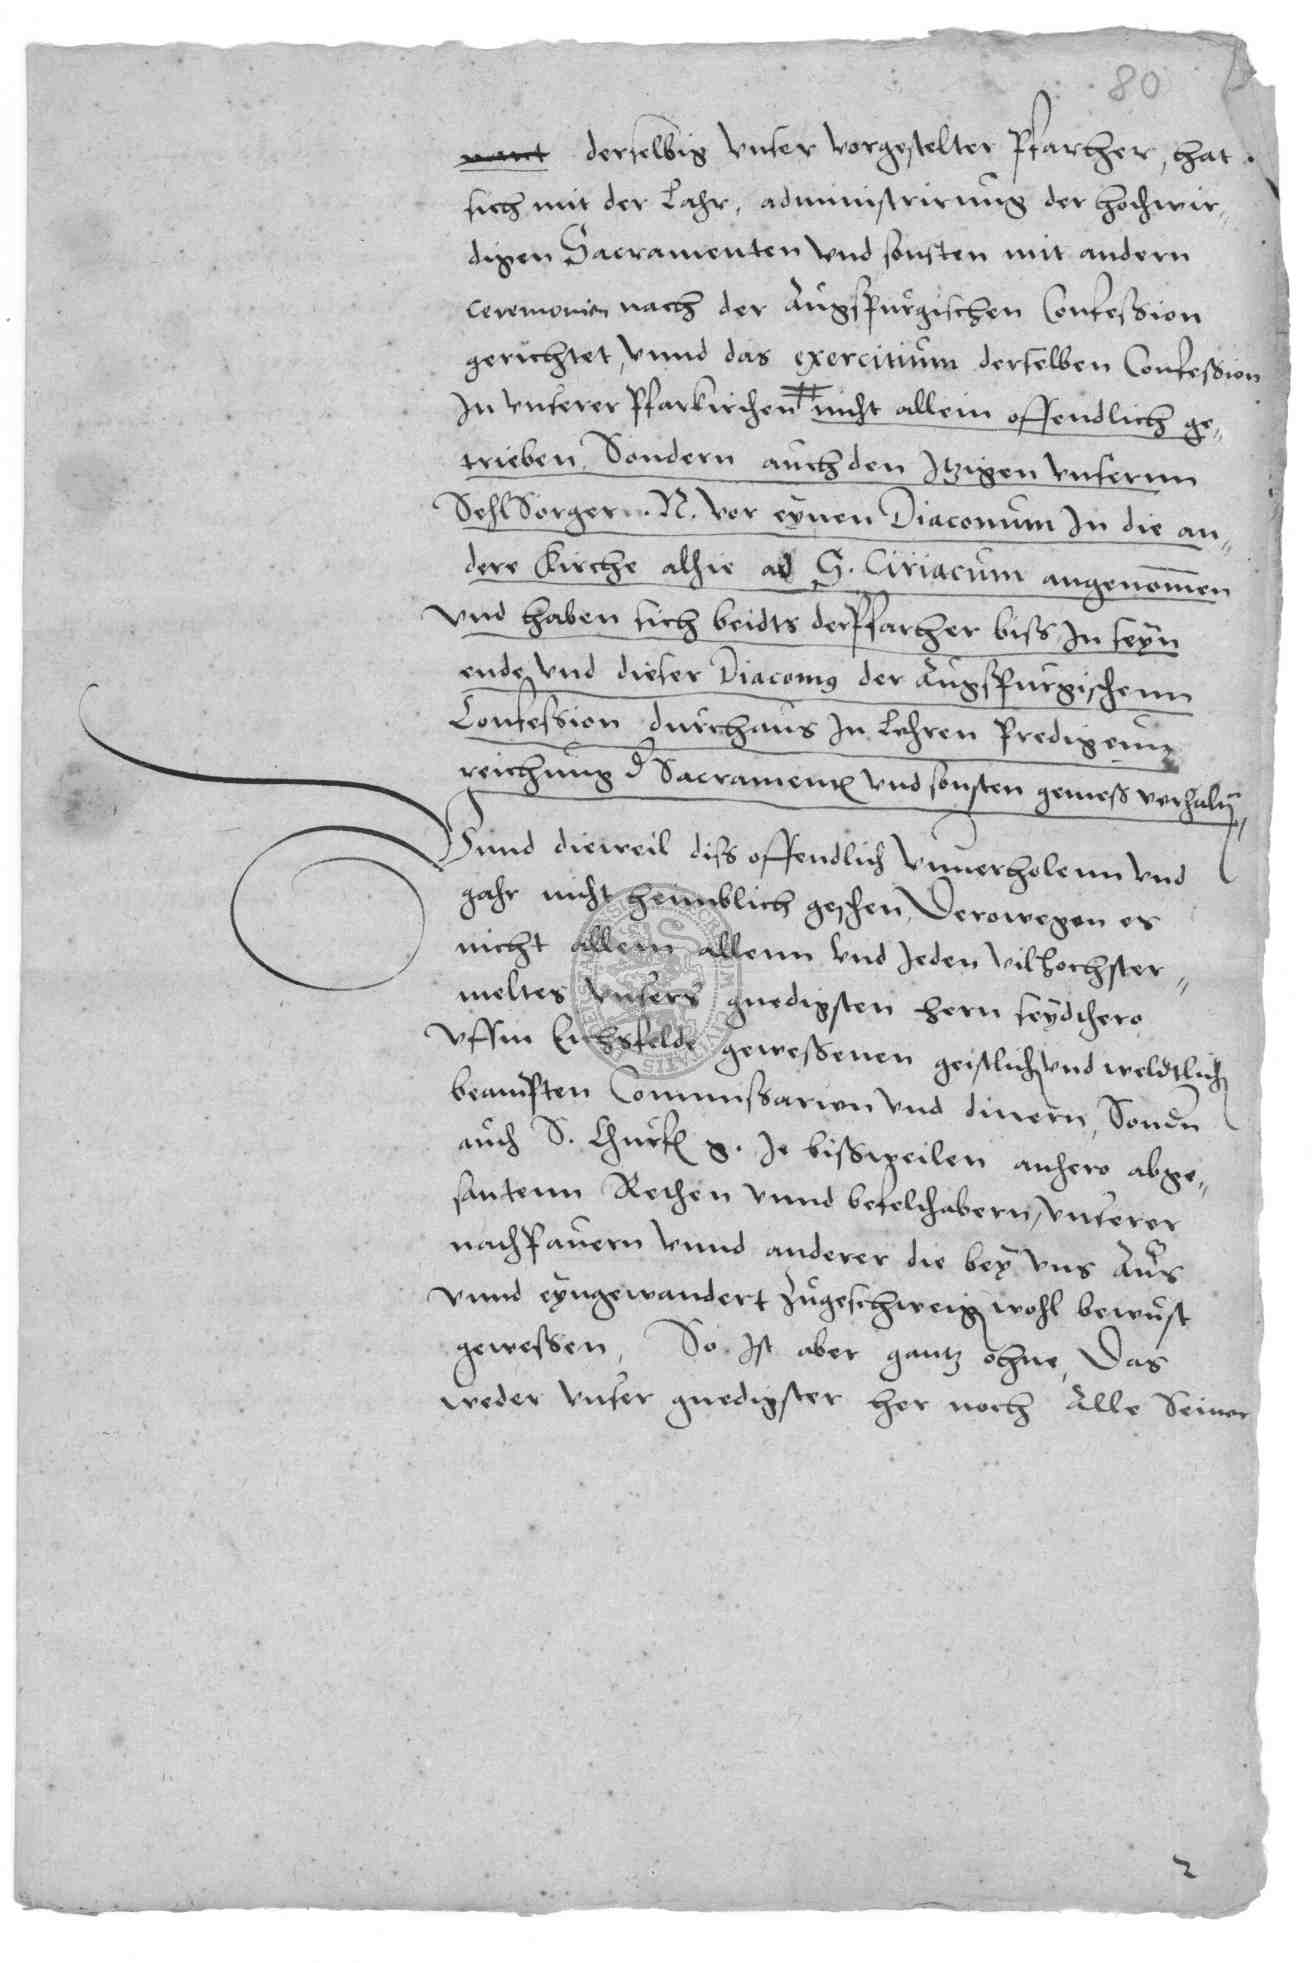 80
derselbig vnser vorgestelter Pfarher, hat
sich mit der Lahr, administrirung der hochwir„
digen Sacramenten vnd sonsten mit andern
ceremonien nach der Augspurgischen Confession
gerichtet, vnnd das exercitium derselben Confession
In vnserer Pfarkirchen nicht allein offendlich ge„
trieben, Sondern auch den Itzigen vnsernn
SehlSorgern. N. vor eynen Diaconum In die an„
dere Kirche alhie ad S. Ciriacum angenommen
vnd haben sich beidts der Pfarher biss In seyn
ende vnd dieser Diaconus der Augspurgischenn
Confession durchaus In Lehren Predigenn
reichung d Sacrament vnd sonsten gemess verhaltn
Vnnd dieweil diss offendlich vnuerholenn vnd
gahr nicht heimblich geschen, Derowegen es
nicht allein allenn vnd Jeden vilhochster„
meltes vnsers gnedigsten hern seydthero
vffm Eichsfelde gewessenen geistlich vnd weldtlich
beampten Commissarien vnd dinern, Sondn
auch S. Churf g. Je bissweilen anhero abge„
santenn Rethen vnnd befelchabern, vnserer
nachPauern vnnd anderer die bey vns Aus
vnnd eyngewandert Zugeschweig wohl bewust
gewessen, So Ist aber gantz ohne, Das
weder vnser gnedigster her noch Alle Seiner
2